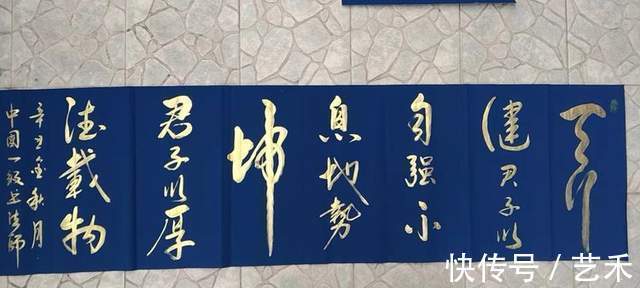 天行
健君子以
自强不
息地勢
坤
君子以厚
德載物
辛丑金秋月
中国一级书法师
快传号 / 艺禾